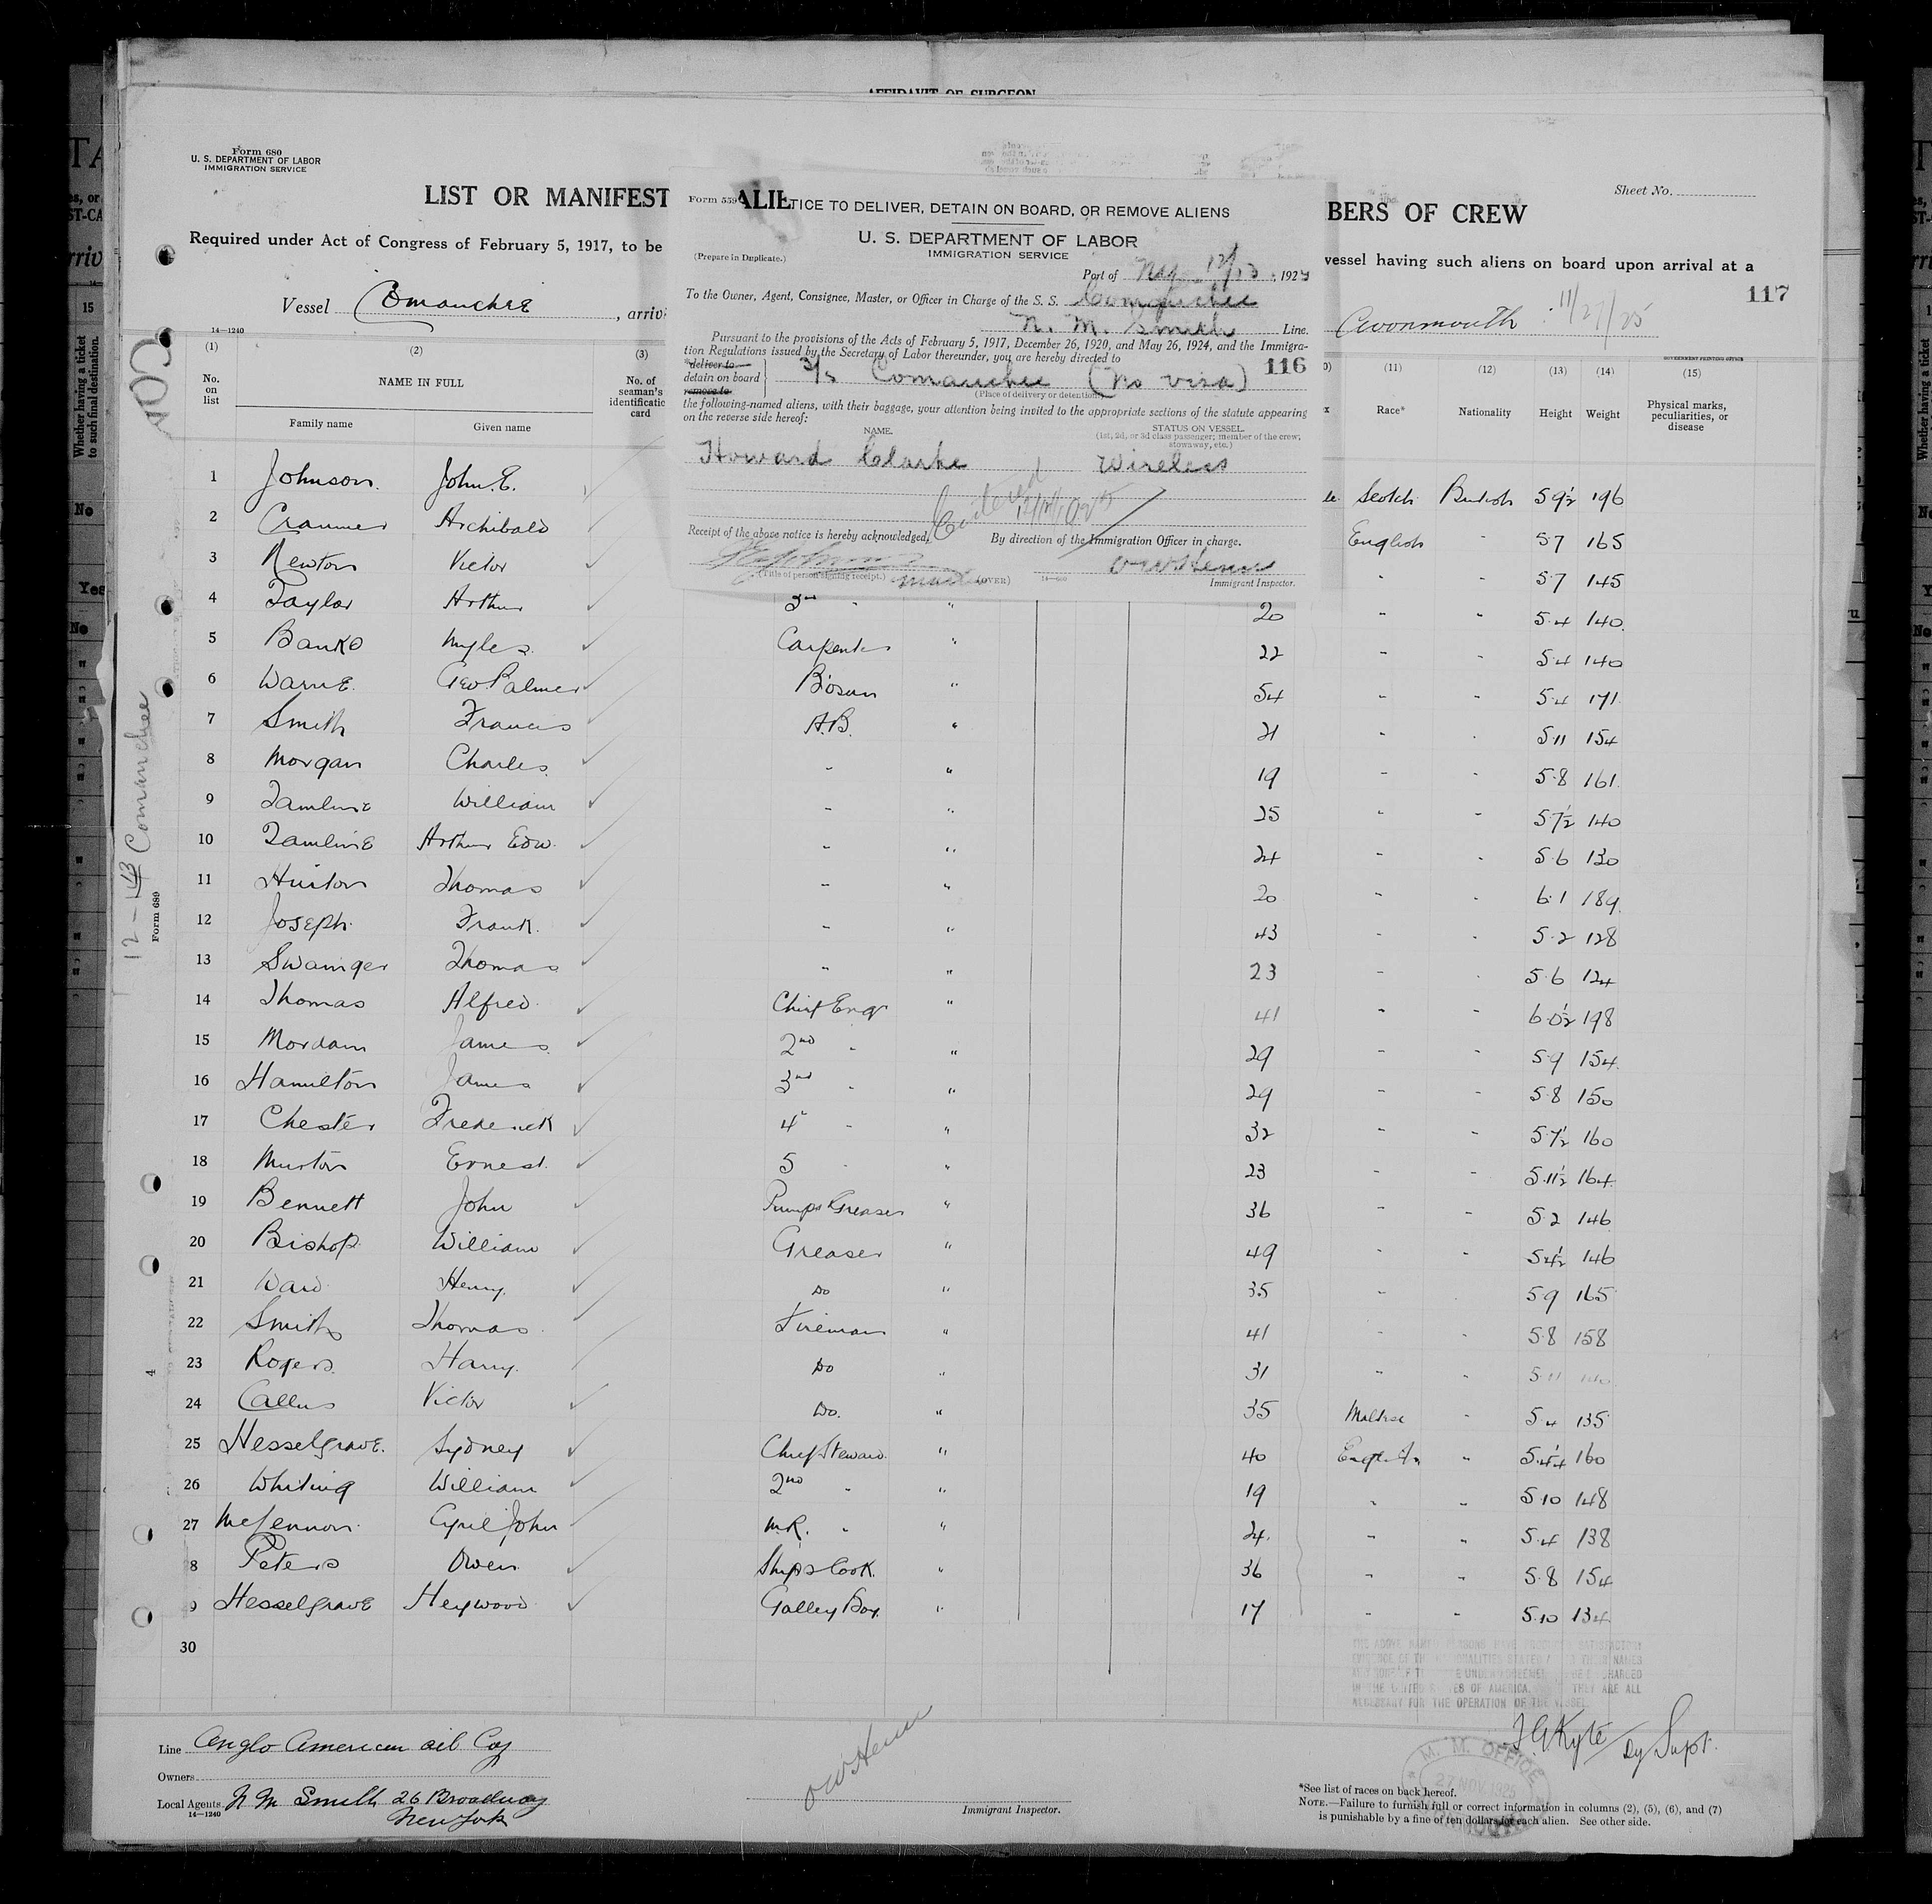 AFFIDAVIT OF SURGEON
Form 680
U. S. DEPARTMENT OF LABOR
IMMIGRATION SERVICE
Sheet No.
LIST OR MANIFEST
BERS OF CREW
Required under Act of Congress of February 5, 1917, to be
vessel having such aliens on board upon arrival at a
117
Vessel Comanchee , arriv
Avonmouth 11/27/25
14—1240
GOVERNMENT PRINTING OFFICE
Form 559 ALIE
TICE TO DELIVER, DETAIN ON BOARD, OR REMOVE ALIENS
U. S. DEPARTMENT OF LABOR
IMMIGRATION SERVICE
(Prepare in Duplicate.)
Port of 12/13, 192
To the Owner, Agent, Consignee, Master, or Officer in Charge of the S. S. Comanchee
N. M. Smith Line.
Pursuant to the provisions of the Acts of February 5, 1917, December 26, 1920, and May 26, 1924, and the Immigra-
tion Regulations issued by the Secretary of Labor thereunder, you are hereby directed to
116
deliver to
detain on board
remove to
S/s Comanchee (No visa)
(Place of delivery or detention.)
the following-named aliens, with their baggage, your attention being invited to the appropriate sections of the statute appearing
on the reverse side hereof:
NAME. STATUS ON VESSEL.
(1st, 2d, or 3d class passenger; member of the crew,
stowaway, etc.)
Howard Clarke Wireless
Receipt of the above notice is hereby acknowledged,
By direction of the Immigration Officer in charge.
(Title of person signing receipt.) master (OVER) 14—600 Immigrant Inspector.
(1) (2) (3) (11) (12) (13) (14) (15)
No. on list
NAME IN FULL
No. of seaman's identificatio card
Race* Nationality Height Weight
Physical marks, peculiarities, or disease
Family name Given name
1 Johnson John E. Scotch British 5 9½ 196
2 Cranmer Archibald English " 5 7 165
3 Newton Victor " " 5 7 145
4 Taylor Arthur 3rd " " 20 " " 5.4 140
5 Banks Myles Carpenter " 22 " " 5.4 140
6 Warne Geo. Palmer Bosun " 54 " " 5.4 171
7 Smith Francis A.B. " 21 " " 5.11 154
8 Morgan Charles " " 19 " " 5.8 161
9 Tamline William " " 25 " " 5.7½ 140
10 Tamline Arthur Edw. " " 24 " " 5.6 130
11 Huxton Thomas " " 20 6.1 189
12 Joseph Frank " " 43 " " 5.2 128
13 Swainger Thomas " " 23 " " 5.6 124
14 Thomas Alfred Chief Engr " 41 " " 6.0½ 198
15 Mordam James 2nd " " 29 " " 5.9 154
16 Hamilton James 3rd " " 29 " " 5.8 150
17 Chester Frederick 4 " " 32 " " 5.7½ 160
18 Murton Ernest 5 " " 23 " " 5.11½ 164
19 Bennett John Pumps Greaser " 36 " " 5.2 146
20 Bishop William Greaser " 49 " " 5.4½ 146
21 Ward Henry Do " 35 " " 5.9 165
22 Smith Thomas Fireman " 41 " " 5.8 158
23 Rogers Harry Do " 31 " " 5.11
24 Callus Victor Do. " 35 Maltese " 5.4 135
25 Hesselgrave Sydney Chief Steward " 40 English " 160
26 Whiting William 2nd " " 19 " " 5.10 148
27 McLennon Cyril John M.R. " " 24 " " 5.4 138
8 Peters Owen Ships Cook " 36 " " 5.8 154
9 Hesselgrave Heywood Galley Boy " 17 " " 5.10 134
30
12-13 Comanchee
Form 680
THE ABOVE NAMED PERSONS HAVE PRODUCED SATISFACTORY
EVIDENCE OF THE NATIONALITIES STATED
IN THE UNITED STATES OF AMERICA. THEY ARE ALL
NECESSARY FOR THE OPERATION OF THE VESSEL
Dy Supt.
Line Anglo American Oil Coy
Owners
Local Agents N M Smith 26 Broadway
New York
14—1240
Immigrant Inspector.
M. M. OFFICE
27 NOV. 1925
*See list of races on back hereof.
NOTE.—Failure to furnish full or correct information in columns (2), (5), (6), and (7)
is punishable by a fine of ten dollars for each alien. See other side.